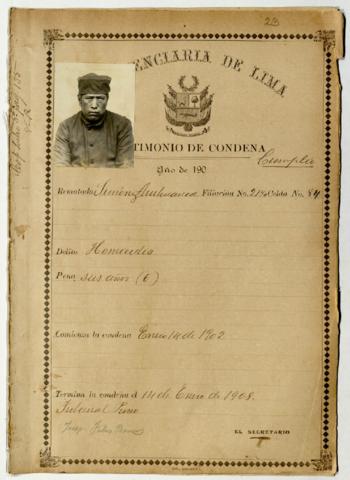 23
ENCIARIA DE LIMA
TIMONIO DE CONDENA
Cumplió
Año de 190
Rematado Simón Filiación No. Celda No. 84
Delito Homicidio
Pena seis años (6)
Comienza la condena Enero 14 de 1902
Termina la condena el 14 de Enero de 1908.
Tribunal
EL SECRETARIO